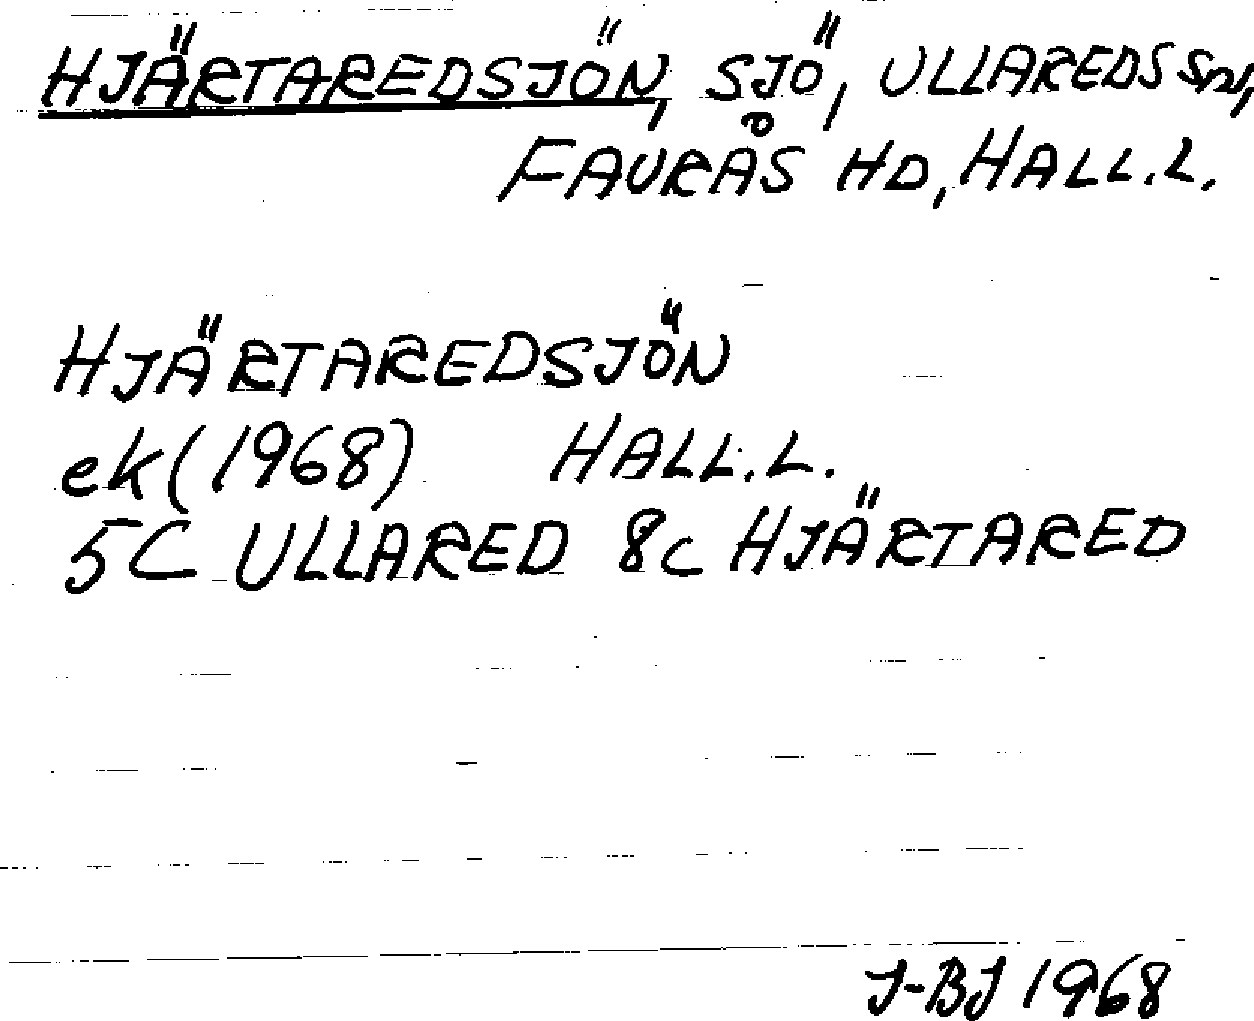 HJÄRTAREDSJÖN, SJÖ, ULLAREDS SN,
FAURÅS HD, HALL.L.
HJÄRTAREDSJÖN
ek(1968) HALL.L.
5C ULLARED 8c HJÄRTARED
J-BJ 1968